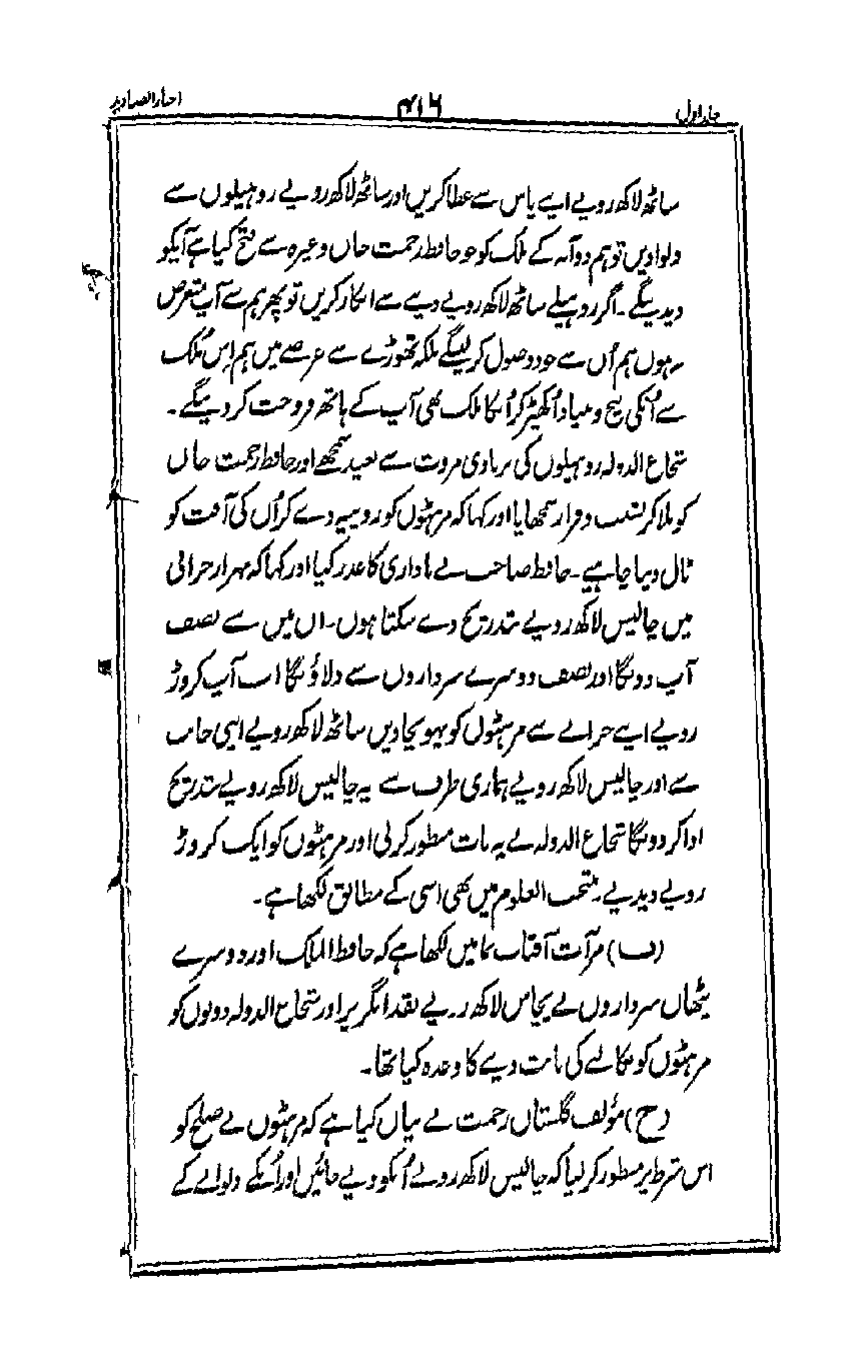 جلد اول ۴۱۶ اخبار الصنادید
ساٹھ لاکھ روپے اپنے پاس سے عطا کریں اور ساٹھ لاکھ روپے روہیلوں سے
دلوادیں تو ہم دوآبہ کے ملک کو جو حافظ رحمت خاں وغیرہ سے فتح کیا ہے آپکو
دیدینگے۔ اگر روہیلے ساٹھ لاکھ روپے دینے سے انکار کریں تو پھر ہم سے آپ متعرض
نہوں ہم اُن سے خود وصول کرلینگے بلکہ تھوڑے سے عرصے میں ہم اِس مُلک
سے اُنکی بیخ و بنیاد اُکھیڑ کر اُن کا ملک بھی آپ کے ہاتھ فروخت کردینگے۔
شجاع الدولہ روہیلوں کی بربادی مروت سے بعید سمجھے اور حافظ رحمت خاں
کو بلا کر نشیب و فراز سمجھایا اور کہا کہ مرہٹوں کو روپیہ دے کر اُن کی آفت کو
ٹال دینا چاہیے۔ حافظ صاحب نے ناداری کا عذر کیا اور کہا کہ بہزار خرابی
میں چالیس لاکھ روپے بتدریج دے سکتا ہوں۔ ان میں سے نصف
آپ دونگا اور نصف دوسرے سرداروں سے دلاؤنگا اب آپ کروڑ
روپے اپنے خزانے سے مرہٹوں کو پہونچادیں ساٹھ لاکھ روپے اپنی جانب
سے اور چالیس لاکھ روپے ہماری طرف سے یہ چالیس لاکھ روپے بتدریج
ادا کردونگا شجاع الدولہ نے یہ بات منظور کرلی اور مرہٹوں کو ایک کروڑ
روپے دیدیے۔ منتخب العلوم میں بھی اسی کے مطابق لکھا ہے۔
(ب) مرآت آفتاب نما میں لکھا ہے کہ حافظ الملک اور دوسرے
پٹھان سرداروں نے پچاس لاکھ روپے نقد انگریز اور شجاع الدولہ دونوں کو
مرہٹوں کو نکالنے کی بابت دینے کا وعدہ کیا تھا۔
(ج) مؤلف گلستان رحمت نے بیان کیا ہے کہ مرہٹوں نے صلح کو
اس شرط پر منظور کرلیا کہ چالیس لاکھ روپے اُنکو دیے جائیں اور اُنکے دلوانے کے